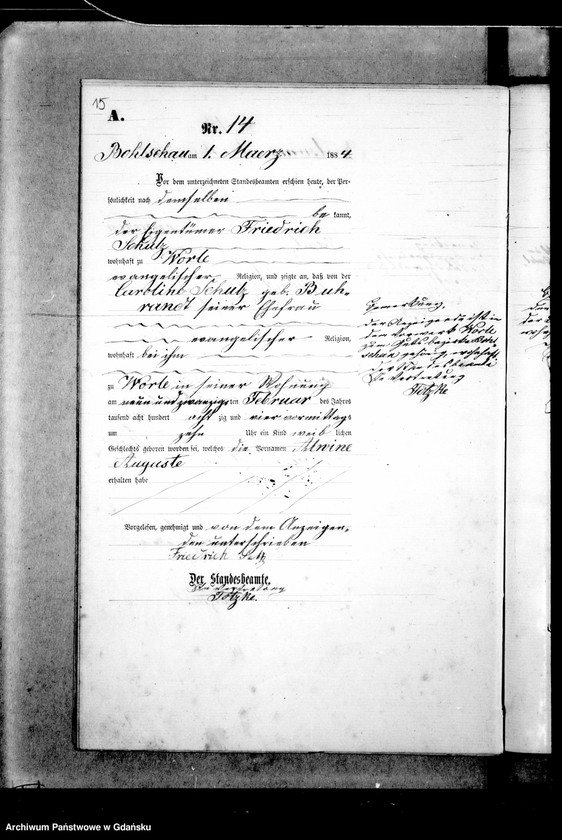 15
A.
Nr. 14
Bohlschau am 1. Maerz 1884
Vor dem unterzeichneten Standesbeamten erschien heute, der Per-
sönlichkeit nach demselben
be kannt,
der Eigentümer Friedrich
Schulz
wohnhaft zu Worle
evangelischer Religion, und zeigte an, daß von der
Caroline Schulz geb. Buh-
randt seiner Ehefrau
evangelischer Religion,
wohnhaft bei ihm
zu Worle in seiner Wohnung
am neun und zwanzigsten Februar des Jahres
tausend acht hundert acht zig und vier vormittags
um zehn Uhr ein Kind weib lichen
Geschlechts geboren worden sei, welches die Vornamen Alwine
Auguste
erhalten habe
Vorgelesen, genehmigt und von dem Anzeigen-
den unterschrieben
Friedrich
Der Standesbeamte.
In Vertretung
Totzke.
Bemerkung.
der Anzeigende ist in
dem Vorwerk Worle
zum Gutsbezirk Bohl-
schau gehörig, wohnhaft
der Standesbeamte
In Vertretung
Totzke
Archiwum Państwowe w Gdańsku